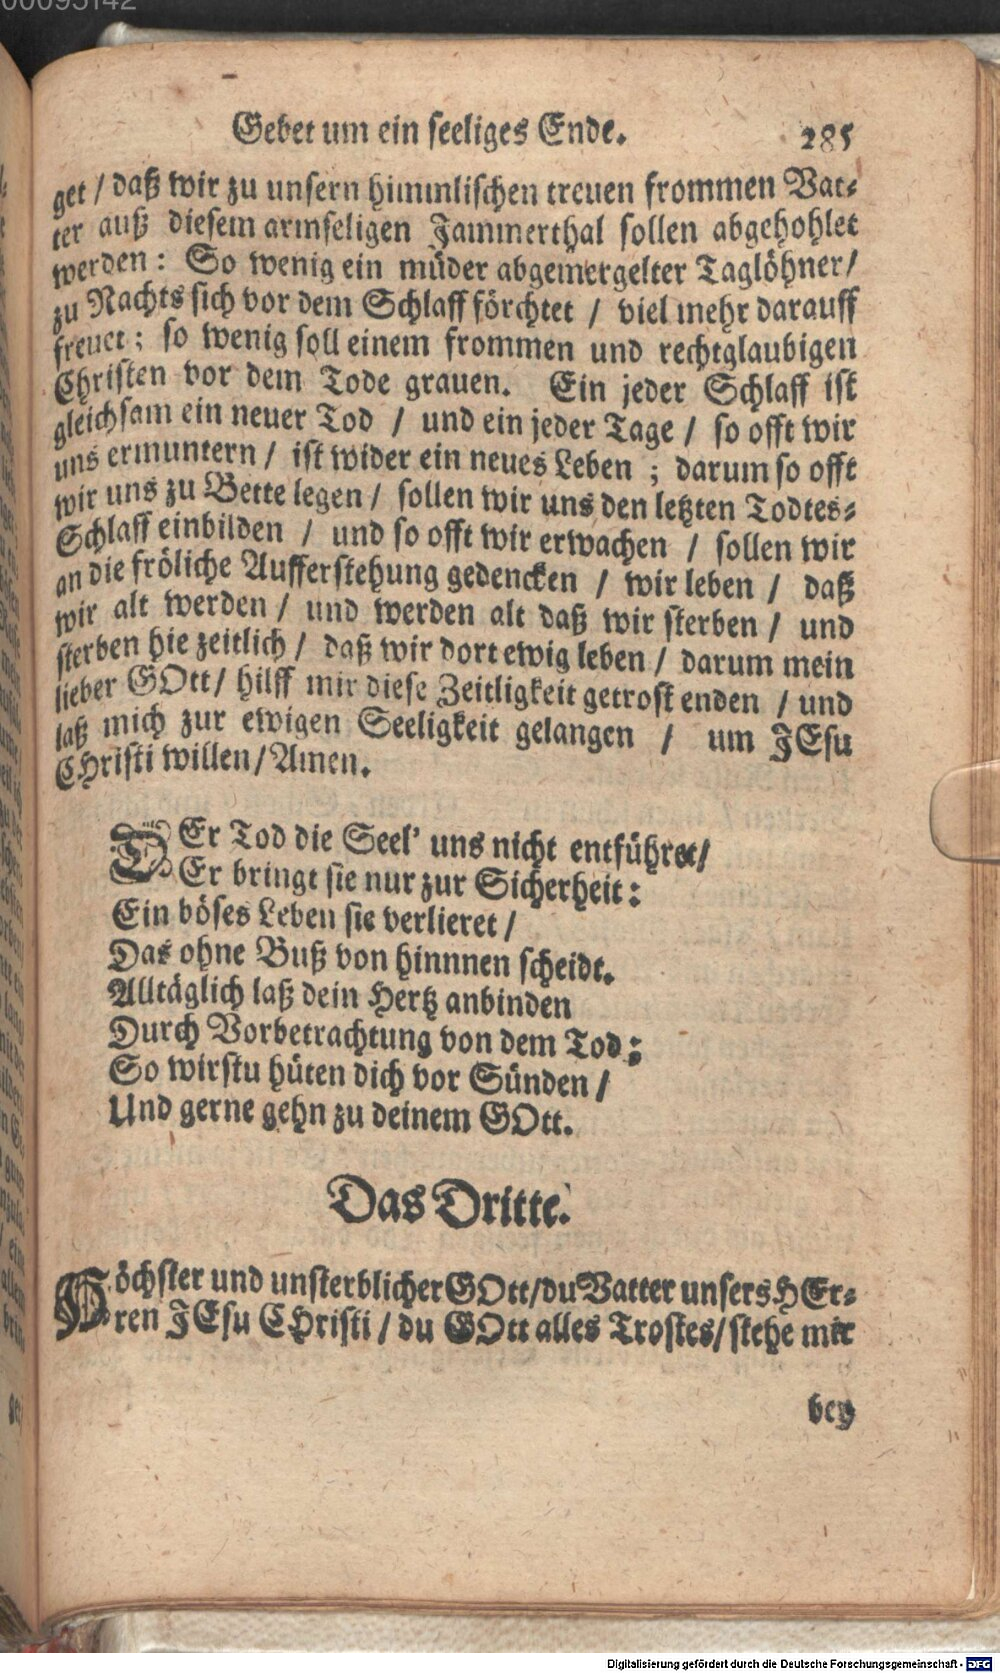 00095142
Gebet um ein seeliges Ende. 285
get / daß wir zu unsern himmlischen treuen frommen Vat-
ter auß diesem armseligen Jammerthal sollen abgehohlet
werden: So wenig ein müder abgemergelter Taglöhner/
zu Nachts sich vor dem Schlaff förchtet / viel mehr darauff
freuet; so wenig soll einem frommen und rechtglaubigen
Christen vor dem Tode grauen. Ein jeder Schlaff ist
gleichsam ein neuer Tod / und ein jeder Tage / so offt wir
uns ermuntern / ist wider ein neues Leben ; darum so offt
wir uns zu Bette legen / sollen wir uns den letzten Todtes-
Schlaff einbilden / und so offt wir erwachen / sollen wir
an die fröliche Aufferstehung gedencken / wir leben / daß
wir alt werden / und werden alt daß wir sterben / und
sterben hie zeitlich / daß wir dort ewig leben / darum mein
lieber GOtt / hilff mir diese Zeitligkeit getrost enden / und
laß mich zur ewigen Seeligkeit gelangen / um JEsu
CHristi willen / Amen.
DEr Tod die Seel' uns nicht entführet/
Er bringt sie nur zur Sicherheit:
Ein böses Leben sie verlieret /
Das ohne Buß von hinnnen scheidt.
Alltäglich laß dein Hertz anbinden
Durch Vorbetrachtung von dem Tod:
So wirstu hüten dich vor Sünden /
Und gerne gehn zu deinem GOtt.
Das Dritte.
Höchster und unsterblicher GOtt/du Vatter unsers HEr-
ren JEsu CHristi / du GOtt alles Trostes/ stehe mir
bey
Digitalisierung gefördert durch die Deutsche Forschungsgemeinschaft - DFG